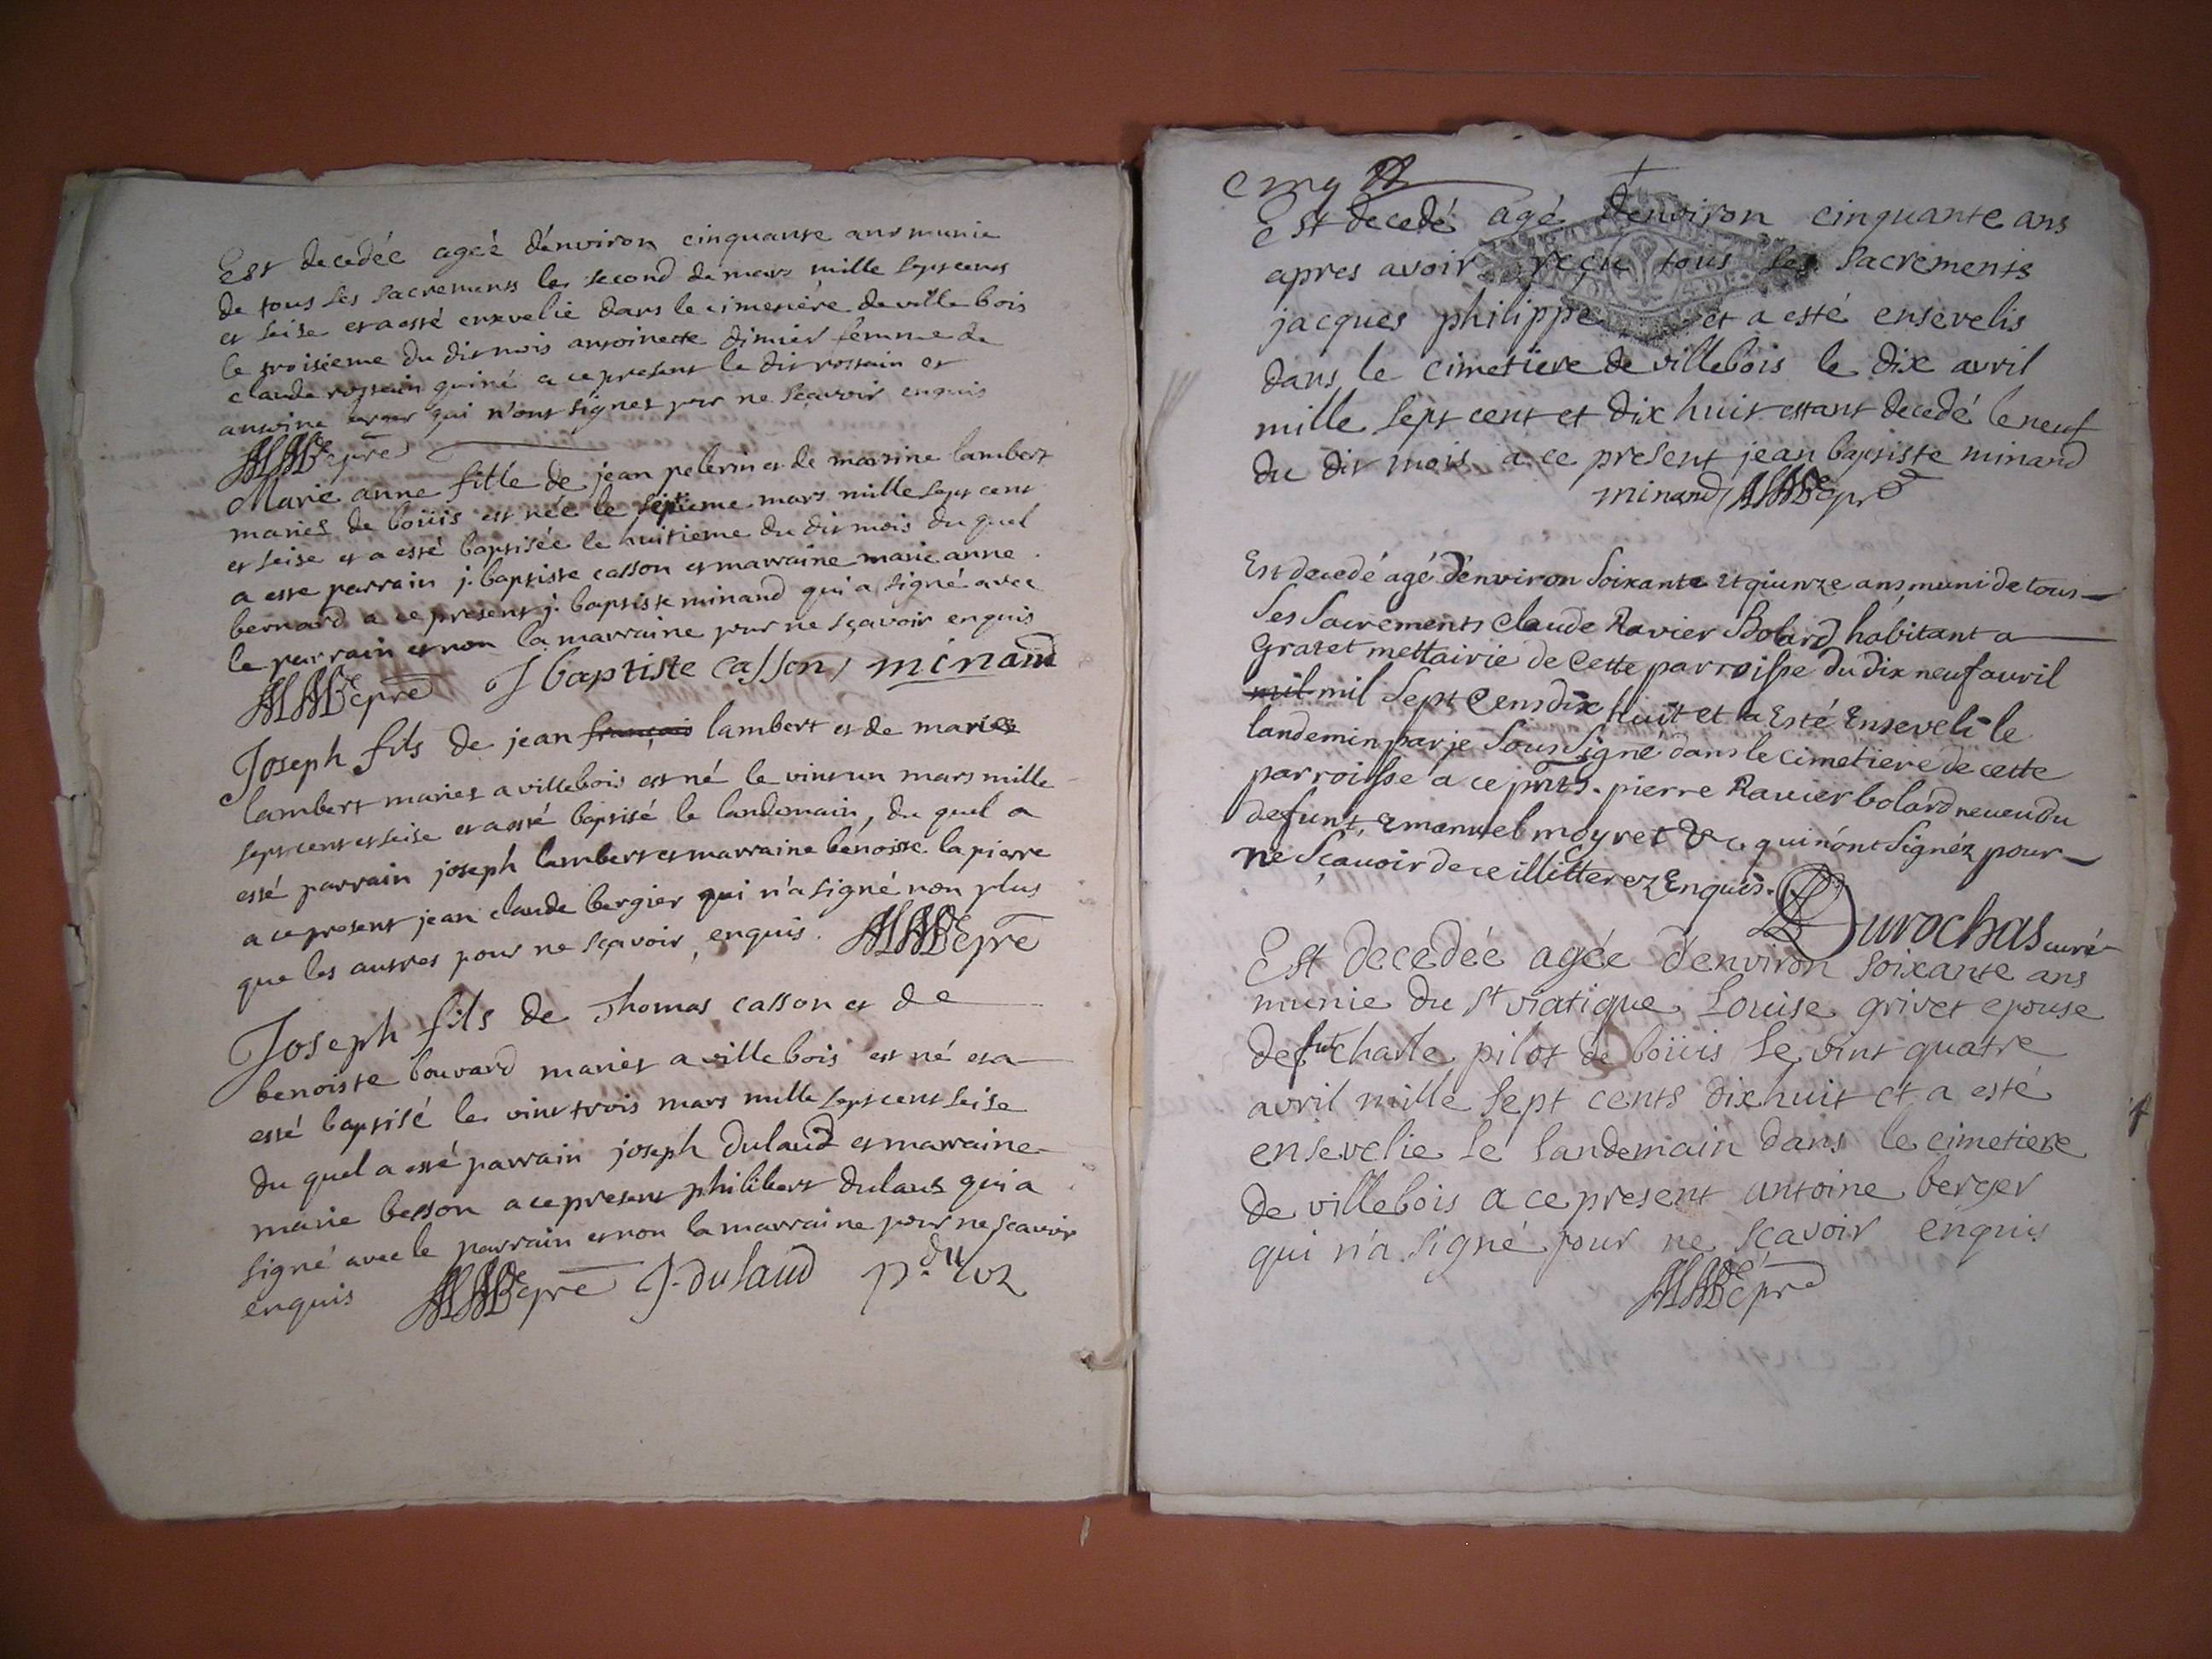 Est decedée ageé d'environ cinquante ans munie
de tous les sacrements le second de mars mille septcents
et seise et a esté ensevelie dans le cimetière de villebois
le troisieme du dit mois antoinette dimier femme de
claude rossain quiné a ce present le dit rossain et
antoine qui n'ont signes pour ne sçavoir enquis
epre
Marie anne fille de jean pelerin et de marine lambert
mariés de boüis est née le septieme mars mille sept cent
et seise et a esté baptisée le huitieme du dit mois du quel
a esté parrain j. baptiste casson et marraine marie anne
bernard a ce present j. baptiste minand qui a signé avec
le parrain et non la marraine pour ne sçavoir enquis
epre J baptiste casson minand
Joseph fils de jean françois lambert et de marie
lambert mariés a villebois est né le vint un mars mille
sept cent et seise et a esté baptisé le landemain, du quel a
esté parrain joseph lambert et marraine benoiste lapierre
a ce present jean claude bergier qui n'a signé non plus
que les autres pour ne sçavoir, enquis. epre
Joseph fils de Thomas casson et de
benoiste bouvard mariés a villebois est né et a
esté baptisé le vint trois mars mille sept cent seise
du quel a esté parrain joseph dulaud et marraine
marie besson a ce present philibert dulaud qui a
signé avec le parrain et non la marraine pour ne sçavoir
enquis epre J. dulaud p. du
cinq
Est decedé agé d'environ cinquante ans
apres avoir reçu tous les sacrements
jacques philippe et a esté ensevelis
dans le cimetiere de villebois le dix avril
mille sept cent et dix huit estant decedé le neuf
du dit mois a ce present jean baptiste minand
minand epre
Est decedé agé d'environ soixante et qiunze ans, muni de tous
Ses Sacrements Claude Ravier Bolard habitant a
gratet mettairie de Cette parroisse du dix neuf auril
mil mil Sept Cens dix huit et a Esté Enseveli le
landemin par je Sous Signé dans le Cimetiere de cette
parroisse a ce pnts. pierre Ravier bolard neueu du
defunt, Emanuel moyret &c. qui n'ont Signéz pour
ne Sçauoir de ce illitterez Enquis.
Durochas curé
Est decedée agée d'environ soixante ans
munie du St viatique Louise grivet epouse
de fut charle pilot de boüis le vint quatre
avril mille sept cents dixhuit et a esté
ensevelie le landemain dans le cimetiere
de villebois a ce present antoine berger
qui n'a signé pour ne sçavoir enquis
epre